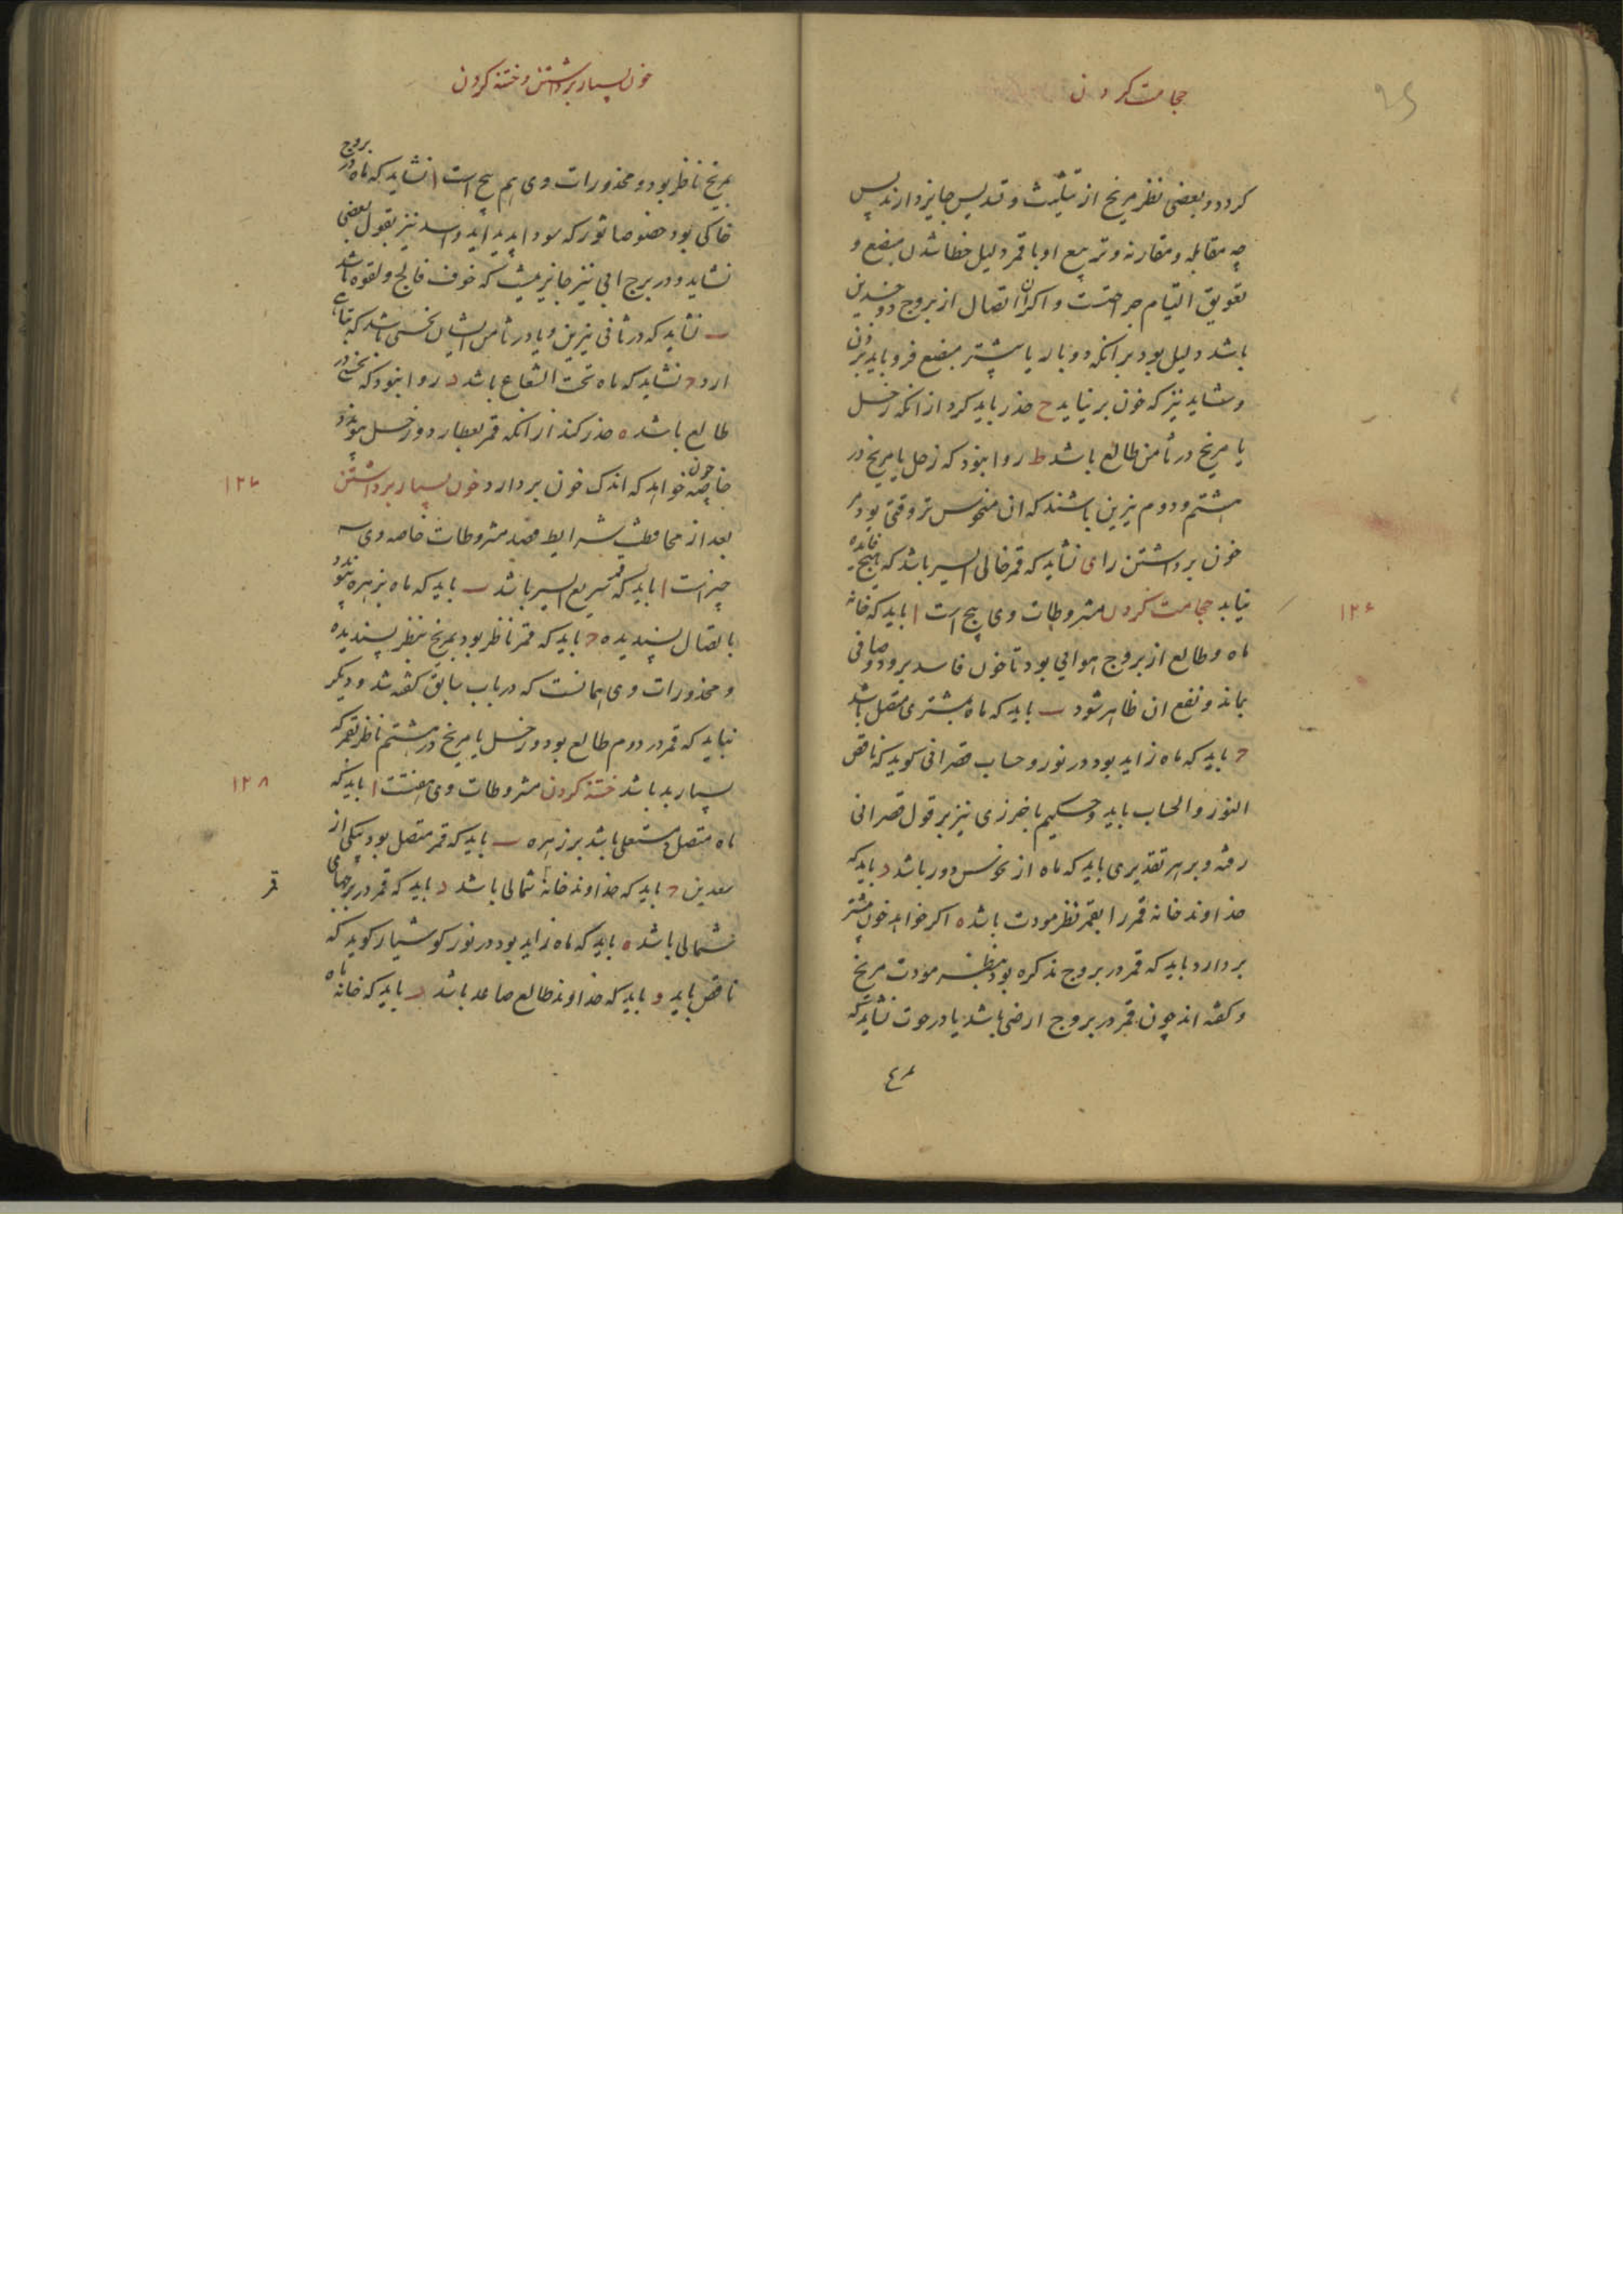 حجامت کردن
۹۵
کردد و بعضی نظر مریخ از تثلیث و تسدیس جایز دارند پس
چه مقابله و مقارنه و تربیع او با قمر دلیل خطا شدن مبضع و
تعویق التیام جراحتست و اکر ان اتصال از بروج ذو جسدین
باشد دلیل بود بر انکه دو بار یا بیشتر مبضع فرو باید زدن
و شاید نیز که خون بر نیاید ح حذر باید کرد از انکه زحل
یا مریخ در ثامن طالع باشد ط روا نبود که زحل یا مریخ در
هشتم و دوم نیرین باشند که ان منحوس تر وقتی بود مر
خون برداشتن را ی نشاید که قمر خالی السیر باشد که هیچ فایده
نیابد حجامت کردن مشروطات وی پنج است ا باید که خانه
۱۲۶
ماه و طالع از بروج هوایی بود تا خون فاسد برود و صافی
بماند و نفع ان ظاهر شود ب باید که ماه بمشتری متصل باشد
ج باید که ماه زاید بود در نور و حساب قصرانی کوید که ناقص
النور و الحساب باید و حکیم باخرزی نیز بر قول قصرانی
رفته و بر هر تقدیری باید که ماه از نحوس دور باشد د باید که
خداوند خانه قمر را بقمر نظر مودت باشد ه اکر خواهد خون بیشتر
بردارد باید که قمر در بروج مذکره بود بنظر مودت مریخ
و کفته اند چون قمر در بروج ارضی باشد یا در حوت نشاید که
خون بسیار برداشتن و ختنه کردن
بمریخ ناظر بود و محذورات وی هم پنج است ا نشاید که ماه در بروج
خاکی بود خصوصا ثور که سودا پدید اید و اسد نیز بقول بعضی
نشاید و در برج ابی نیز جایز نیست که خوف فالج و لقوه باشد
ب نشاید که در ثانی نیرین و یا در ثامن ایشان نحسی باشد که تباهی
ارد ج نشاید که ماه تحت الشعاع باشد د روا نبود که نحسی در
طالع باشد ه حذر کند از انکه قمر بعطارد و زحل پیوندد
خاصه چون خواهد که اندک خون بردارد خون بسیار برداشتن
۱۲۷
بعد از محافظت شرایط فصد مشروطات خاصه وی سه
چیزاست ا باید که قمر سریع السیر باشد ب باید که ماه بزهره پیوندد
باتصال پسندیده ج باید که قمر ناظر بود بمریخ بنظر پسندیده
و محذورات وی همانست که در باب سابق کفته شد و دیکر
نباید که قمر در دوم طالع بود و زحل یا مریخ در هشتم ناظر بقمر که
بسیار بد باشد ختنه کردن مشروطات وی هفتست ا باید که
۱۲۸
ماه متصل و مستعلی باشد بر زهره ب باید که قمر متصل بود بیکی از
سعدین ج باید که خداوند خانه شمالی باشد د باید که قمر در برجهای
قمر
شمالی باشد ه باید که ماه زاید بود در نور کوشیار کوید که
ناقص باید و باید که خداوند طالع صاعد باشد ز باید که خانه ماه